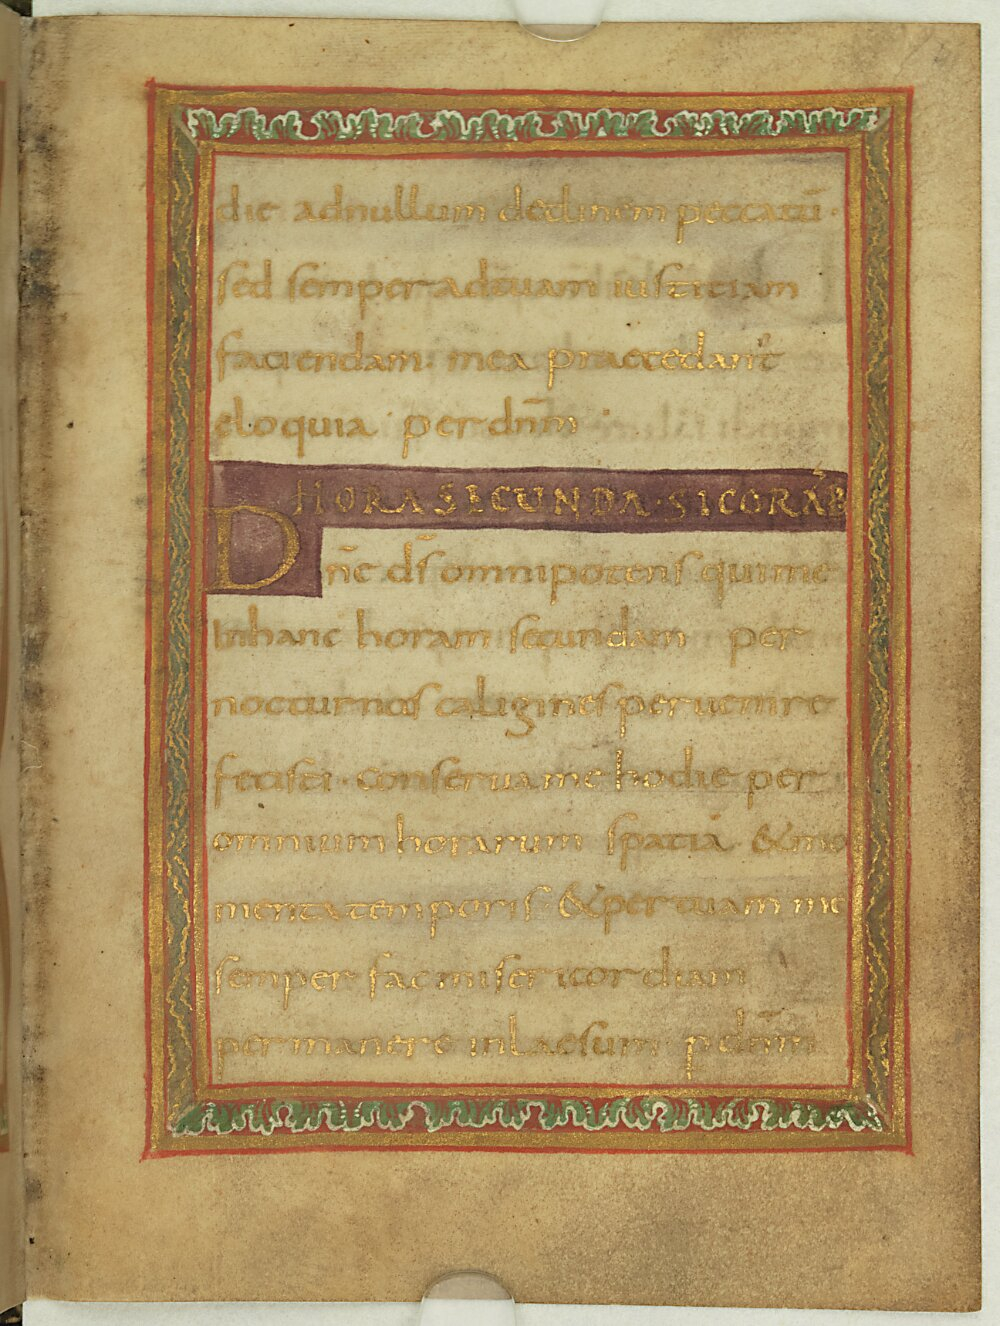 die adnullum declinem peccatū·
sed semper adtuam iustitiam
faciendam· mea praecedant
eloquia per dn̄m
HORA SECUNDA· SIC ORAB
Dn̄e d̄s omnipotens qui me
Inhanc horam secundam per
nocturnas caligines peruenire
fecisti· Conserua me hodie per
omnium horarum spatia &mo
menta temporis· &per tuam me
semper fac misericordiam
permanere inlaesum p dn̄m